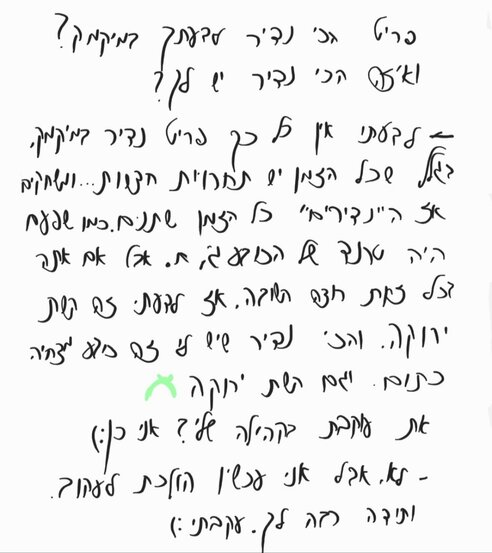 פריט הכי נדיר לדעתך במיקמק?
ואיזה הכי נדיר יש לך?
- לדעתי אין כל כך פריט נדיר במיקמק,
בגלל שכל הזמן יש תחרויות חדשות... ומשחקים
אז ה"נדירים" כל הזמן משתנים. כמו שפעם
היה טרנד של הכובע ג', ח. אבל אם אתה
בכל זאת רוצה תשובה, אז לדעתי זה קשת
ירוקה. והכי נדיר שיש לי זה כובע מצחיה
כתום. וגם קשת ירוקה
את עוקבת בקהילה שלי? אני כן:)
- לא, אבל אני עכשיו הולכת לעקוב.
ותודה רבה לך. עקבתי:)